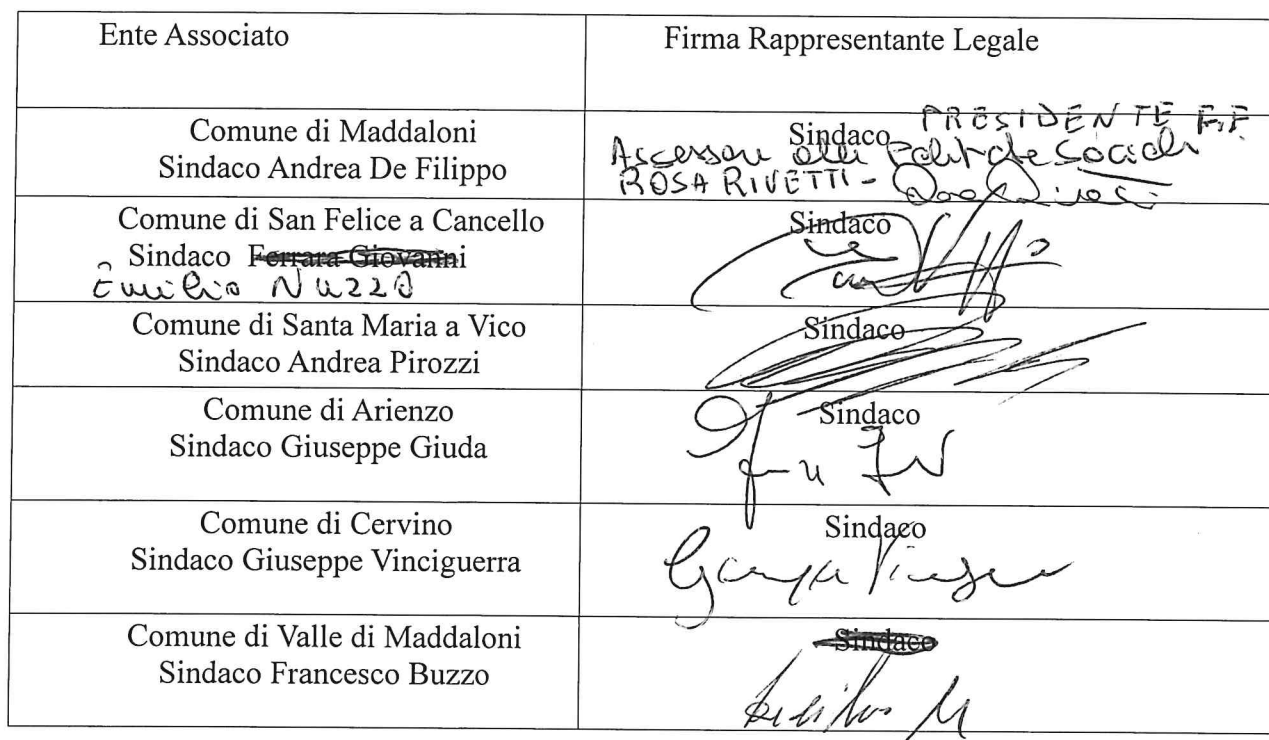 Ente Associato
Firma Rappresentante Legale
Comune di Maddaloni
Sindaco Andrea De Filippo
Sindaco PRESIDENTE F.F.
Assessore alle Politiche Sociali
ROSA RIVETTI -
Comune di San Felice a Cancello
Sindaco Ferrara Giovanni
Emilio NUZZO
Sindaco
Comune di Santa Maria a Vico
Sindaco Andrea Pirozzi
Sindaco
Comune di Arienzo
Sindaco Giuseppe Giuda
Sindaco
Comune di Cervino
Sindaco Giuseppe Vinciguerra
Sindaco
Comune di Valle di Maddaloni
Sindaco Francesco Buzzo
Sindaco